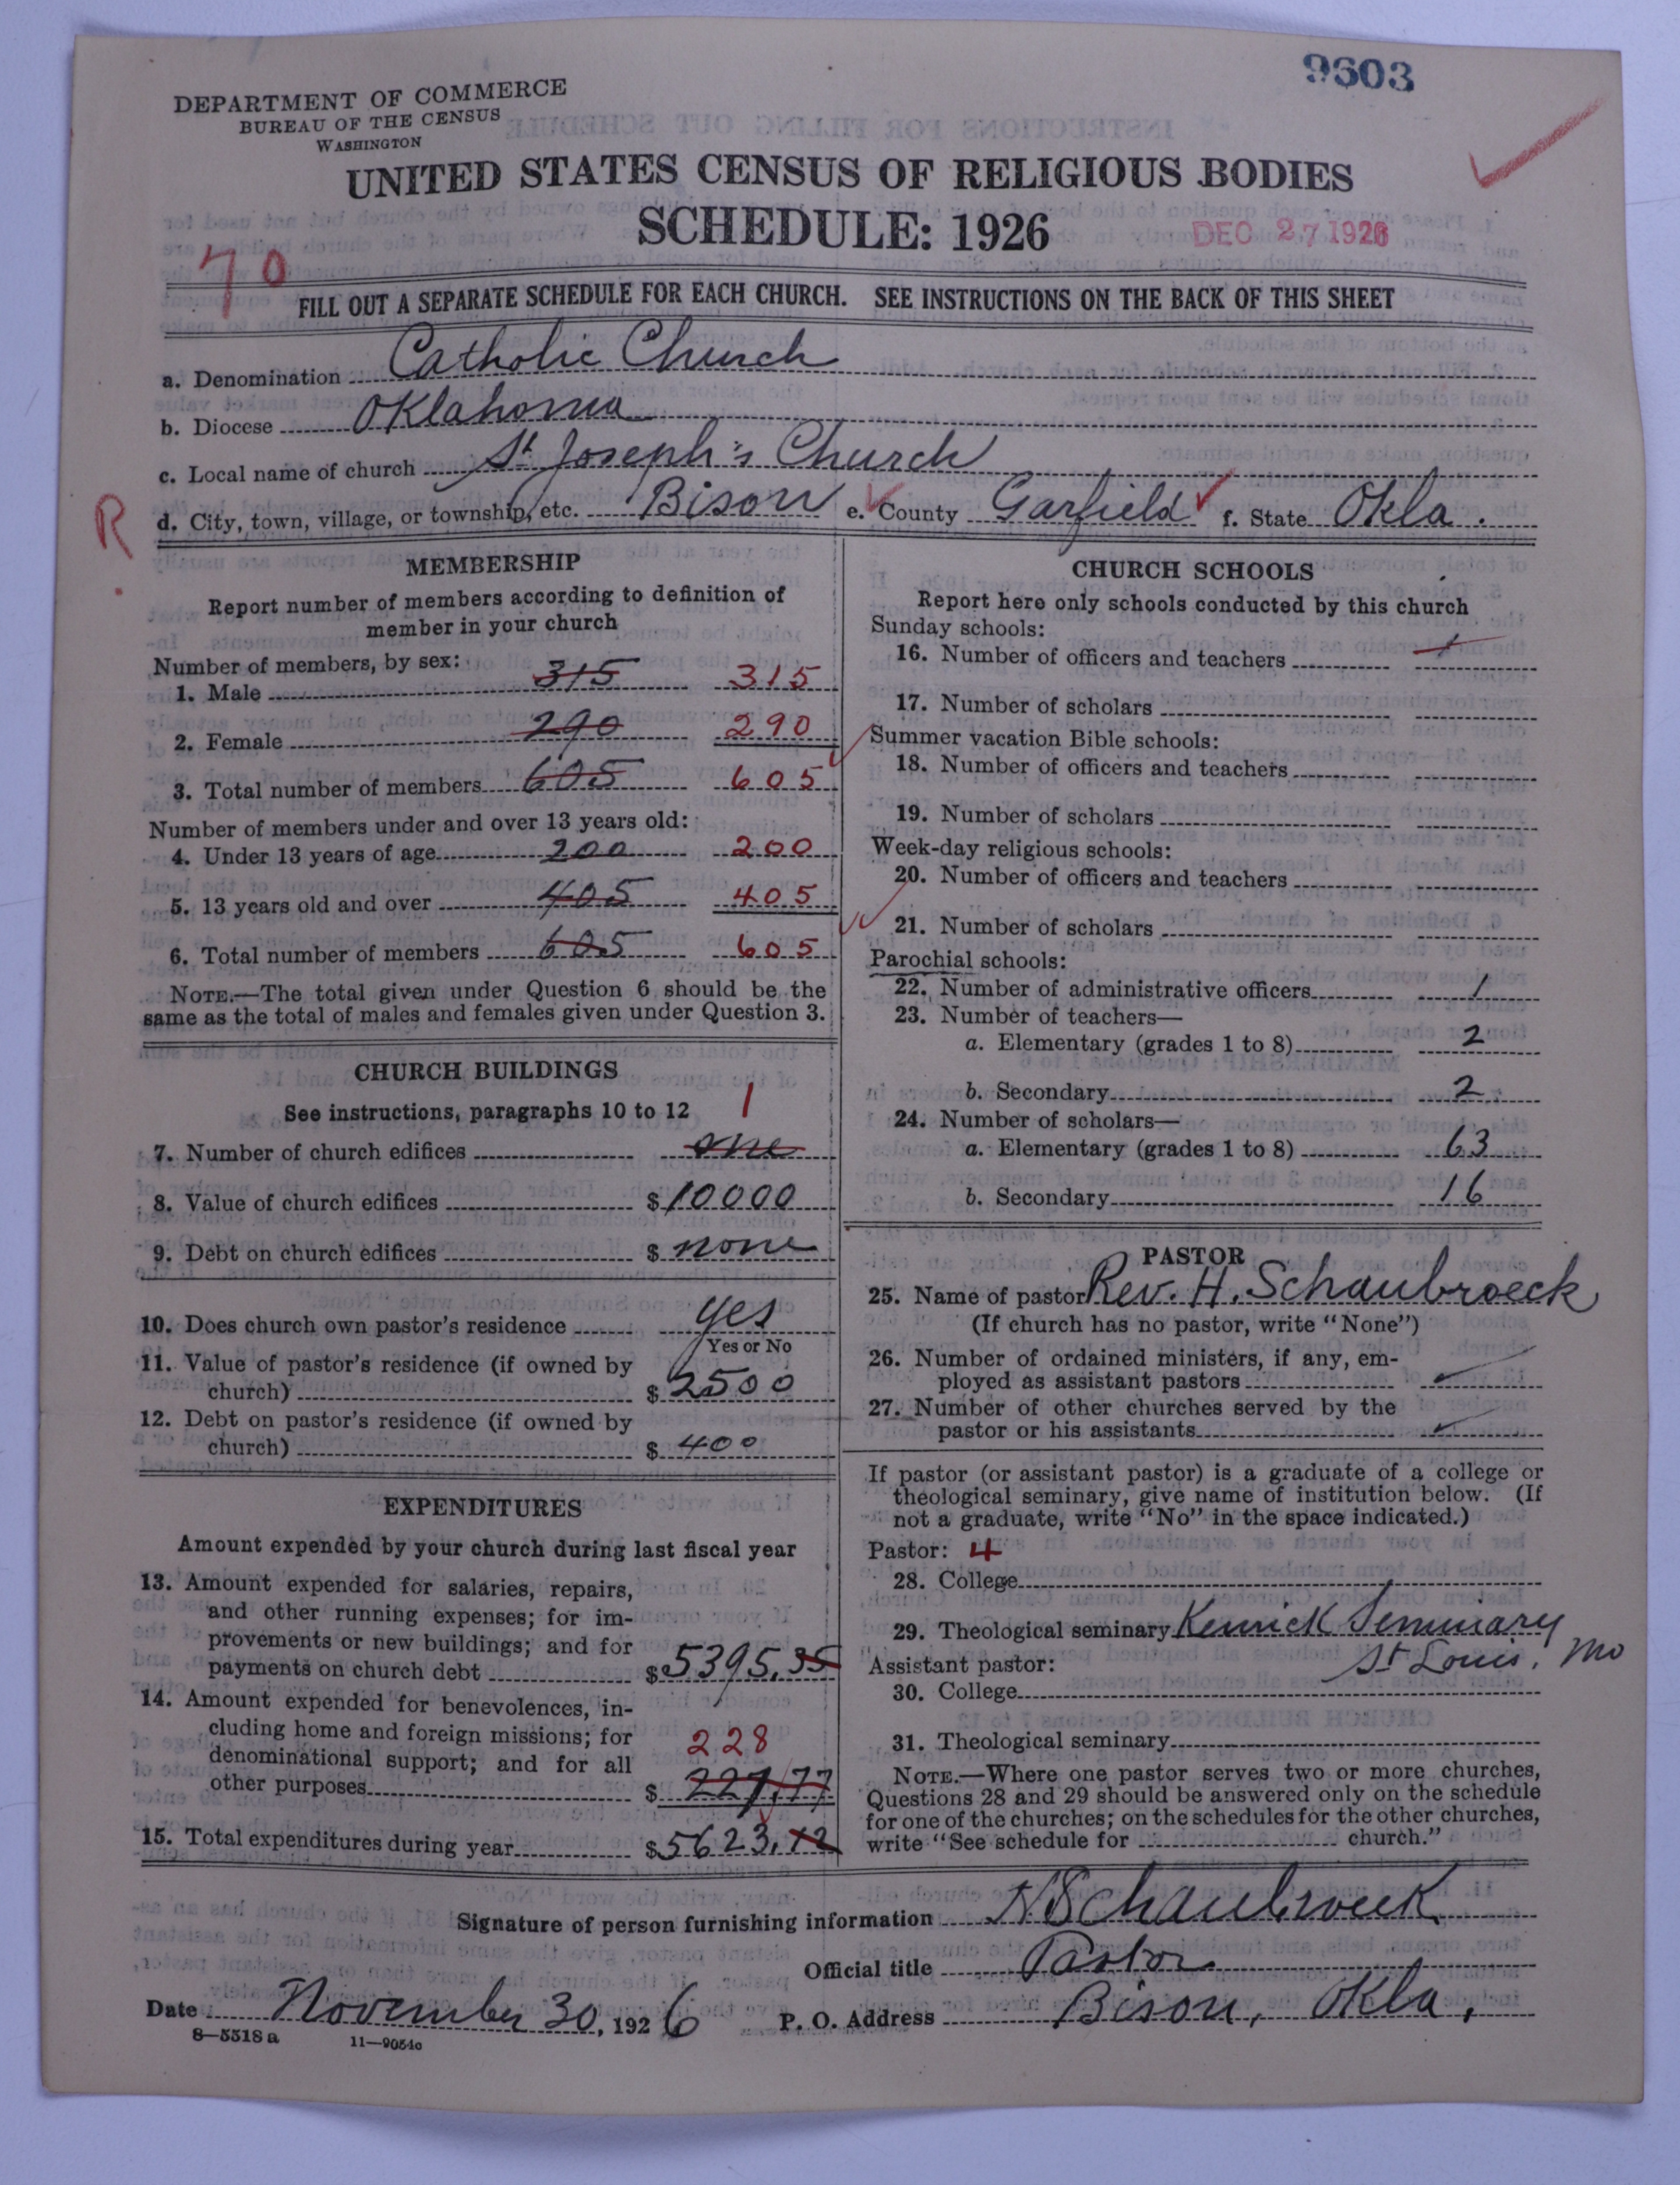 9603
DEPARTMENT OF COMMERCE
BUREAU OF THE CENSUS
WASHINGTON
UNITED STATES CENSUS OF RELIGIOUS BODIES
SCHEDULE: 1926
DEC 27 1926
70
FILL OUT A SEPARATE SCHEDULE FOR EACH CHURCH. SEE INSTRUCTIONS ON THE BACK OF THIS SHEET
a. Denomination Catholic Church
b. Diocese Oklahoma
c. Local name of church St Joseph's Church
R
d. City, town, village, or township, etc. Bison e. County Garfield f. State Okla.
MEMBERSHIP
Report number of members according to definition of
member in your church
Number of members, by sex:
1. Male 315 315
2. Female 290 290
3. Total number of members 605 605
Number of members under and over 13 years old:
4. Under 13 years of age 200 200
5. 13 years old and over 405 405
6. Total number of members 605 605
NOTE.—The total given under Question 6 should be the
same as the total of males and females given under Question 3.
CHURCH BUILDINGS
See instructions, paragraphs 10 to 12 1
7. Number of church edifices one
8. Value of church edifices $ 10000
9. Debt on church edifices $ none
10. Does church own pastor's residence yes
Yes or No
11. Value of pastor's residence (if owned by
church) $ 2500
12. Debt on pastor's residence (if owned by
church) $ 400
EXPENDITURES
Amount expended by your church during last fiscal year
13. Amount expended for salaries, repairs,
and other running expenses; for im-
provements or new buildings; and for
payments on church debt $ 5395.35
14. Amount expended for benevolences, in-
cluding home and foreign missions; for
denominational support; and for all
228
other purposes $ 227,77
15. Total expenditures during year $ 5623.12
CHURCH SCHOOLS
Report here only schools conducted by this church
Sunday schools:
16. Number of officers and teachers 1
17. Number of scholars
Summer vacation Bible schools:
18. Number of officers and teachers
19. Number of scholars
Week-day religious schools:
20. Number of officers and teachers
21. Number of scholars
Parochial schools:
22. Number of administrative officers 1
23. Number of teachers—
a. Elementary (grades 1 to 8) 2
b. Secondary 2
24. Number of scholars—
a. Elementary (grades 1 to 8) 63
b. Secondary 16
PASTOR
25. Name of pastor Rev. H. Schaubroeck
(If church has no pastor, write "None")
26. Number of ordained ministers, if any, em-
ployed as assistant pastors
27. Number of other churches served by the
pastor or his assistants
If pastor (or assistant pastor) is a graduate of a college or
theological seminary, give name of institution below. (If
not a graduate, write "No" in the space indicated.)
Pastor: 4
28. College
29. Theological seminary Kenrick Seminary
Assistant pastor: St Louis, Mo
30. College
31. Theological seminary
NOTE.—Where one pastor serves two or more churches,
Questions 28 and 29 should be answered only on the schedule
for one of the churches; on the schedules for the other churches,
write "See schedule for church."
Signature of person furnishing information H Schaubroeck
Official title Pastor
Date November 30, 1926 P. O. Address Bison, Okla.
8—5518 a 11—9054c